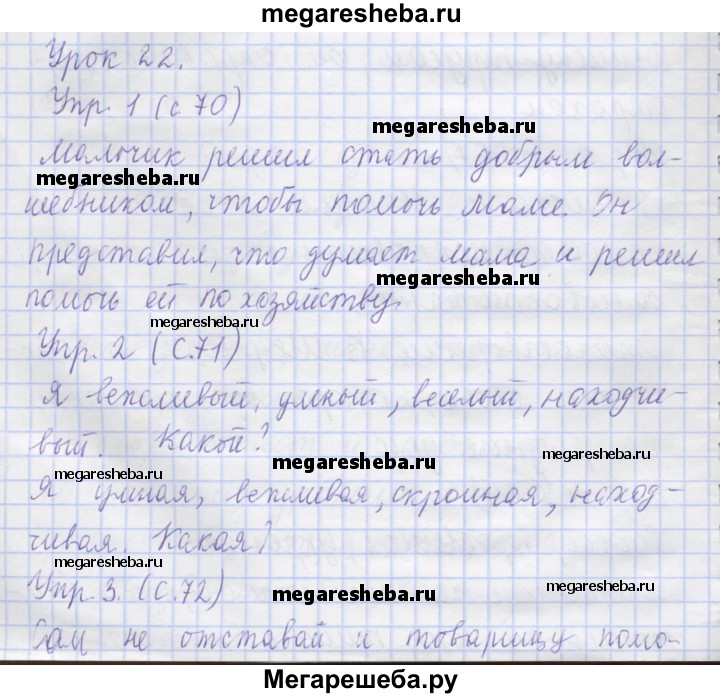 megaresheba.ru
Урок 22.
Упр. 1 (с 70)
megaresheba.ru
Мальчик решил стать добрым вол-
megaresheba.ru
шебником, чтобы помочь маме. Он
представил, что думает мама и решил
megaresheba.ru
помочь ей по хозяйству.
megaresheba.ru
Упр. 2 (с.71)
Я вежливый, умный, веселый, находчи-
вый. Какой?
megaresheba.ru
megaresheba.ru
megaresheba.ru
Я умная, вежливая, скромная, наход-
чивая. Какая?
megaresheba.ru
Упр. 3. (с.72)
megaresheba.ru
megaresheba.ru
Сам не отставай и товарищу помо-
Мегарешеба.ру